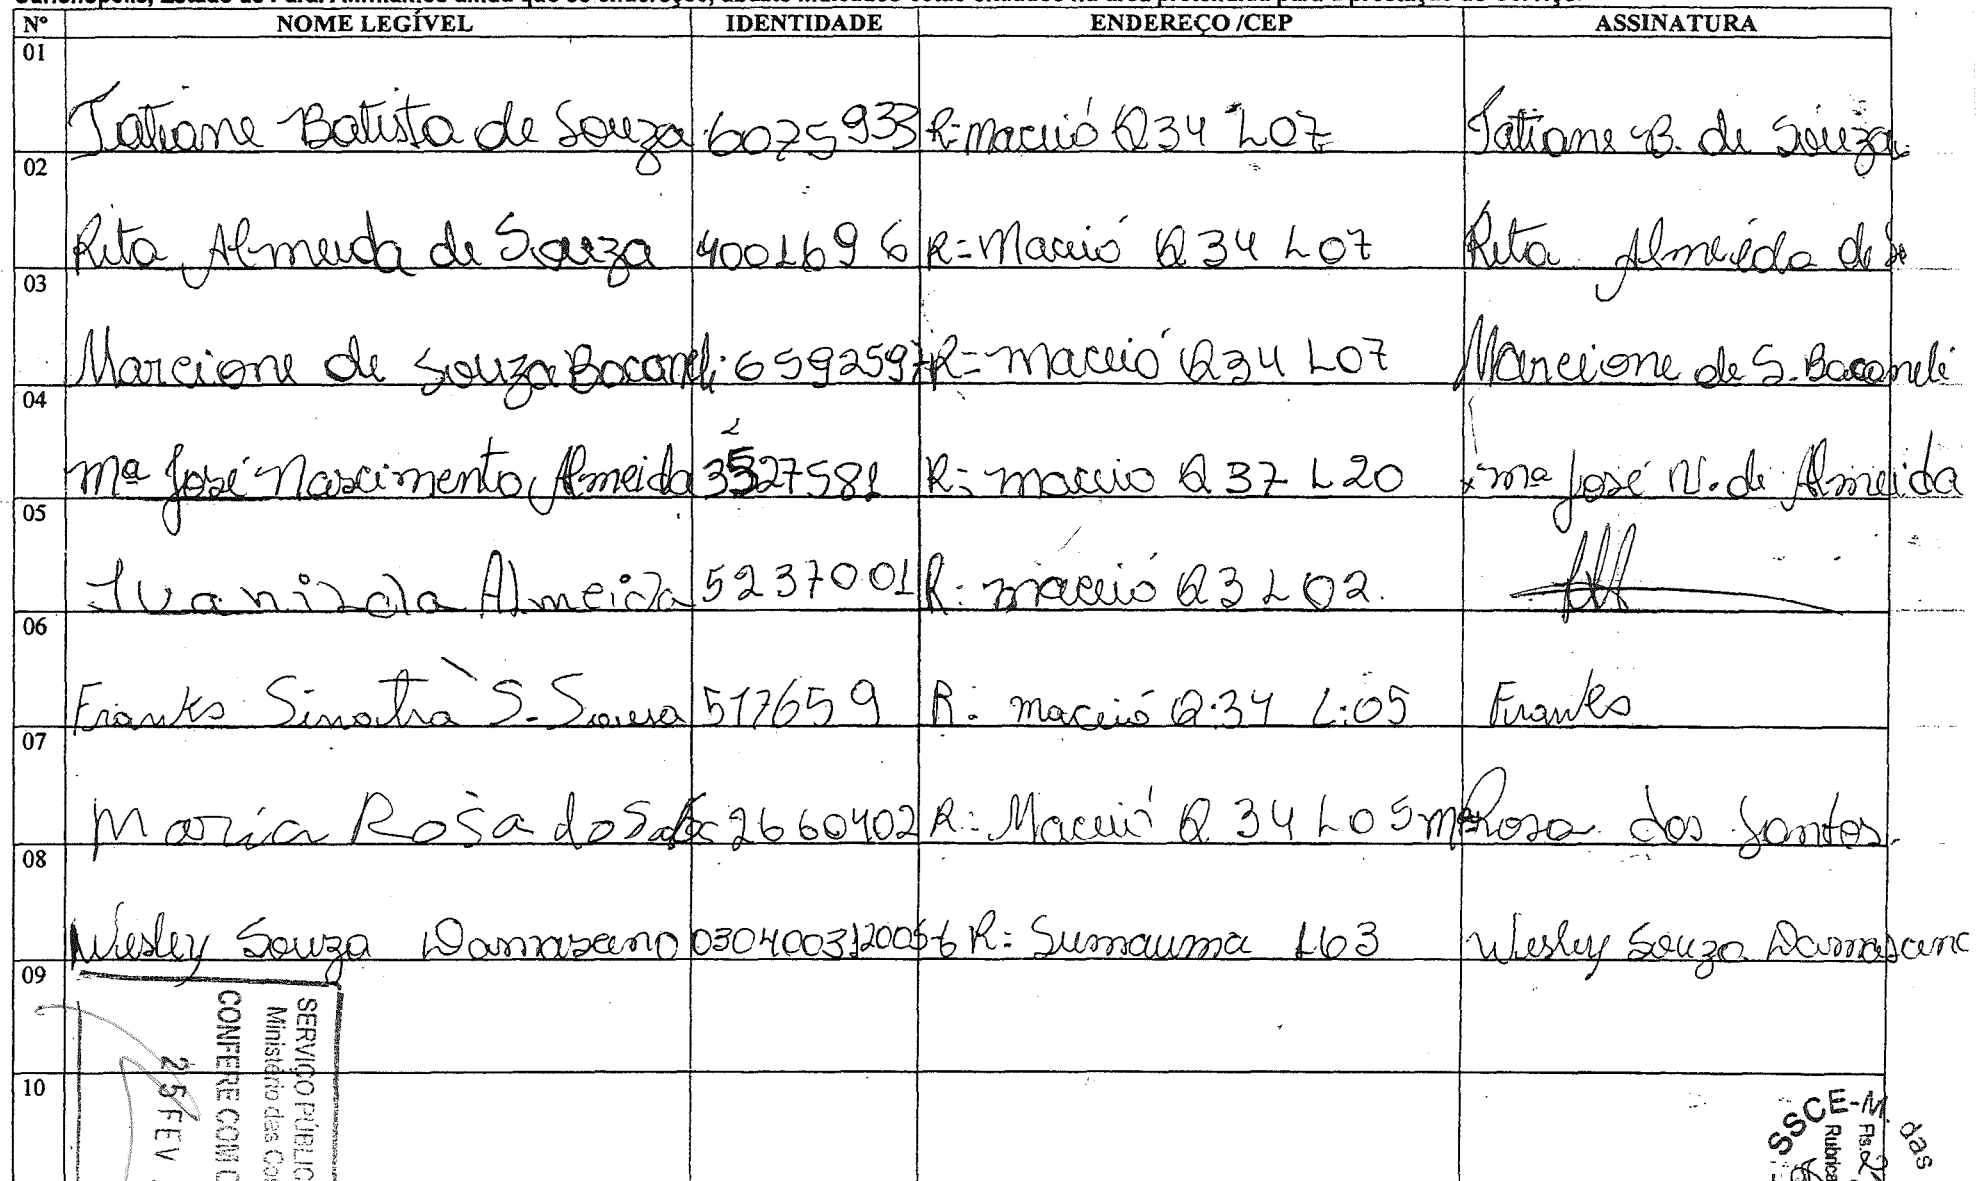 Nº NOME LEGÍVEL IDENTIDADE ENDEREÇO /CEP ASSINATURA
01 Tatiane Batista de Souza 6075933 R: Maceió Q34 L07 Tatiane B. de Souza
02 Rita Almeida de Souza 4001696 R= Maceió Q 34 L 07 Rita Almeida de
03 Marcione de Souza Bocaneli 6592597 R= maceió Q34 L07 Marcione de S. Bocaneli
04 Mª José Nascimento Almeida R: maceio Q 37 L 20 mª José N. de Almeida
05 Ivanilda Almeida 5237001 R: maceió Q3 L02.
06 Franks Sinatra S. Sousa 5177659 R: maceió Q.34 L:05 Franks
07 Maria Rosa dos 2660402 R: Maceió Q 34 L05 mª Rosa dos Santos.
08 Wesley Souza Damasceno R: Sumauma L63 Wesley Souza Damasceno
09
10
SERVIÇO PÚBLIC
Ministério das Co
CONFERE COM O
25 FEV
SSCE-M. das
Fls.
Rubrica